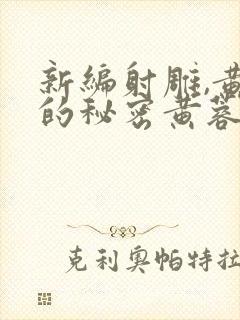 新编射雕,黄
的秘密黄蓉
克利奥帕特拉